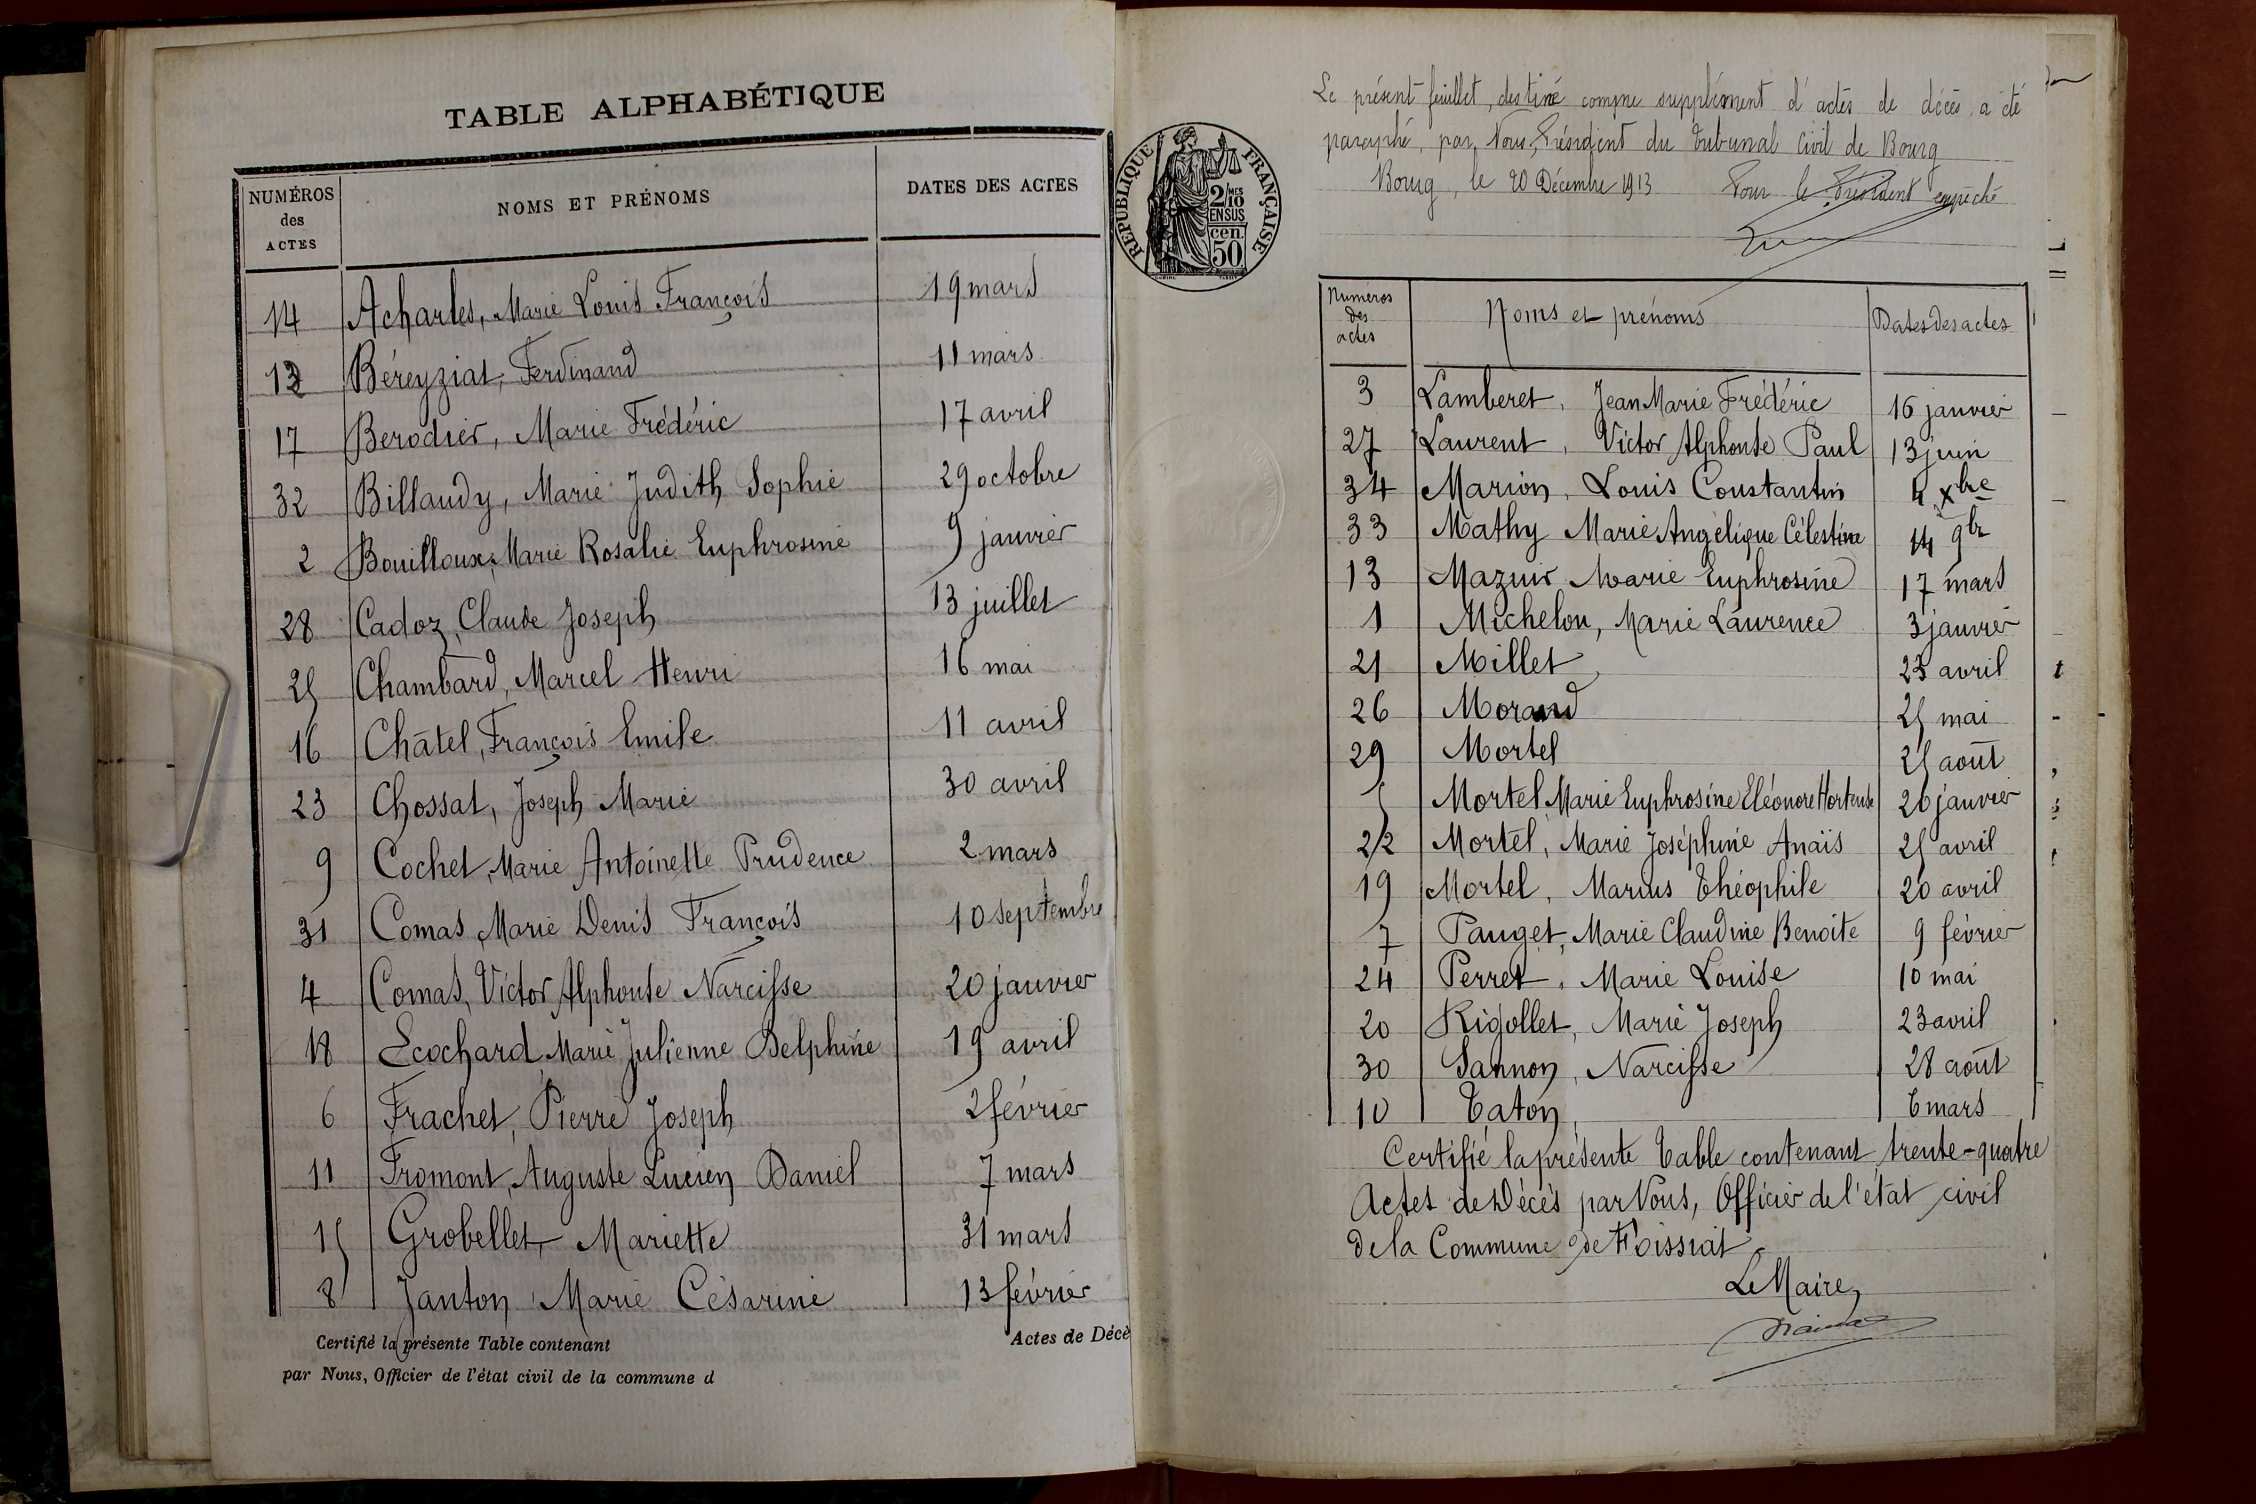 TABLE ALPHABÉTIQUE
NUMÉROS des ACTES NOMS ET PRÉNOMS DATES DES ACTES
14 Acharles, Marie Louis François 19 mars
12 Béreyziat, Ferdinand 11 mars
17 Berodier, Marie Frédéric 17 avril
32 Billaudy, Marie Judith Sophie 29 octobre
2 Bouilloux, Marie Rosalie Euphrosine 9 janvier
28 Cadoz, Claude Joseph 13 juillet
25 Chambard, Marcel Henri 16 mai
16 Châtel, François Emile 11 avril
23 Chossat, Joseph Marie 30 avril
9 Cochet, Marie Antoinette Prudence 2 mars
31 Comas, Marie Denis François 10 septembre
4 Comas, Victor Alphonse Narcisse 20 janvier
18 Ecochard, Marie Julienne Delphine 19 avril
6 Frachet, Pierre Joseph 2 février
11 Fromont, Auguste Lucien Daniel 7 mars
15 Grobellet, Mariette 31 mars
8 Janton, Marie Césarine 13 février
Certifié la présente Table contenant Actes de Décè
par Nous, Officier de l'état civil de la commune d
RÉPUBLIQUE FRANÇAISE
2/10 MES
EN SUS
50 cen.
Le présent feuillet, destiné comme supplément d'actes de décès, a été
paraphé, par Nous, Président du Tribunal Civil de Bourg
Bourg, le 20 Décembre 1913 Pour le Président empêché
Numéros des actes Noms et prénoms Dates des actes
3 Lamberet, Jean Marie Frédéric 16 janvier
27 Laurent, Victor Alphonse Paul 13 juin
34 Marion, Louis Constantin 4 Xbre
33 Mathy Marie Angélique Célestine 14 9bre
13 Mazuir Marie Euphrosine 17 mars
1 Michelon, Marie Laurence 3 janvier
21 Millet 23 avril
26 Morand 25 mai
29 Mortel 25 août
5 Mortel Marie Euphrosine Eléonore Hortense 26 janvier
22 Mortel, Marie Joséphine Anaïs 25 avril
19 Mortel, Marius Théophile 20 avril
7 Pauget, Marie Claudine Benoite 9 février
24 Perret, Marie Louise 10 mai
20 Rigollet, Marie Joseph 23 avril
30 Sannon, Narcisse 28 août
10 Taton, 6 mars
Certifié la présente Table contenant trente-quatre
Actes de Décès par Nous, Officier de l'état civil
de la Commune de Foissiat
Le Maire,